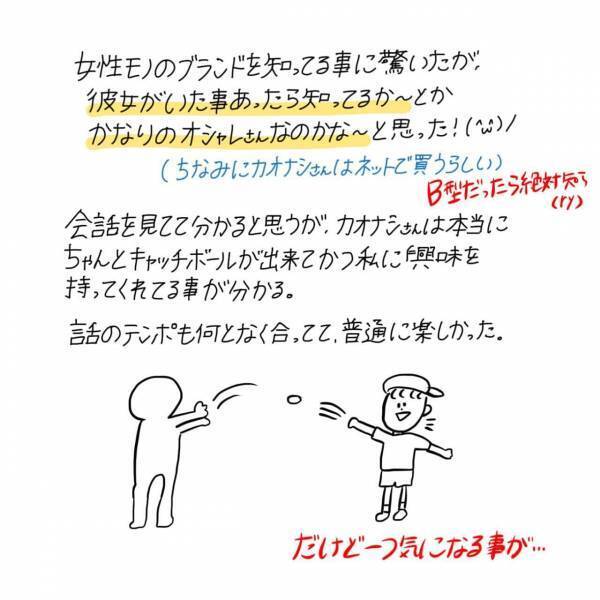 女性モノのブランドを知ってる事に驚いたが、
彼女がいた事あったら知ってるか〜とか
かなりのオシャレさんなのかな〜と思った！(^ω^)ノ
(ちなみにカオナシさんはネットで買うらしい)
B型だったら絶対知ら
(ry)
会話を見てて分かると思うが、カオナシさんは本当に
ちゃんとキャッチボールが出来てかつ私に興味を
持ってくれてる事が分かる。
話のテンポも何となく合ってて、普通に楽しかった。
だけど一つ気になる事が…